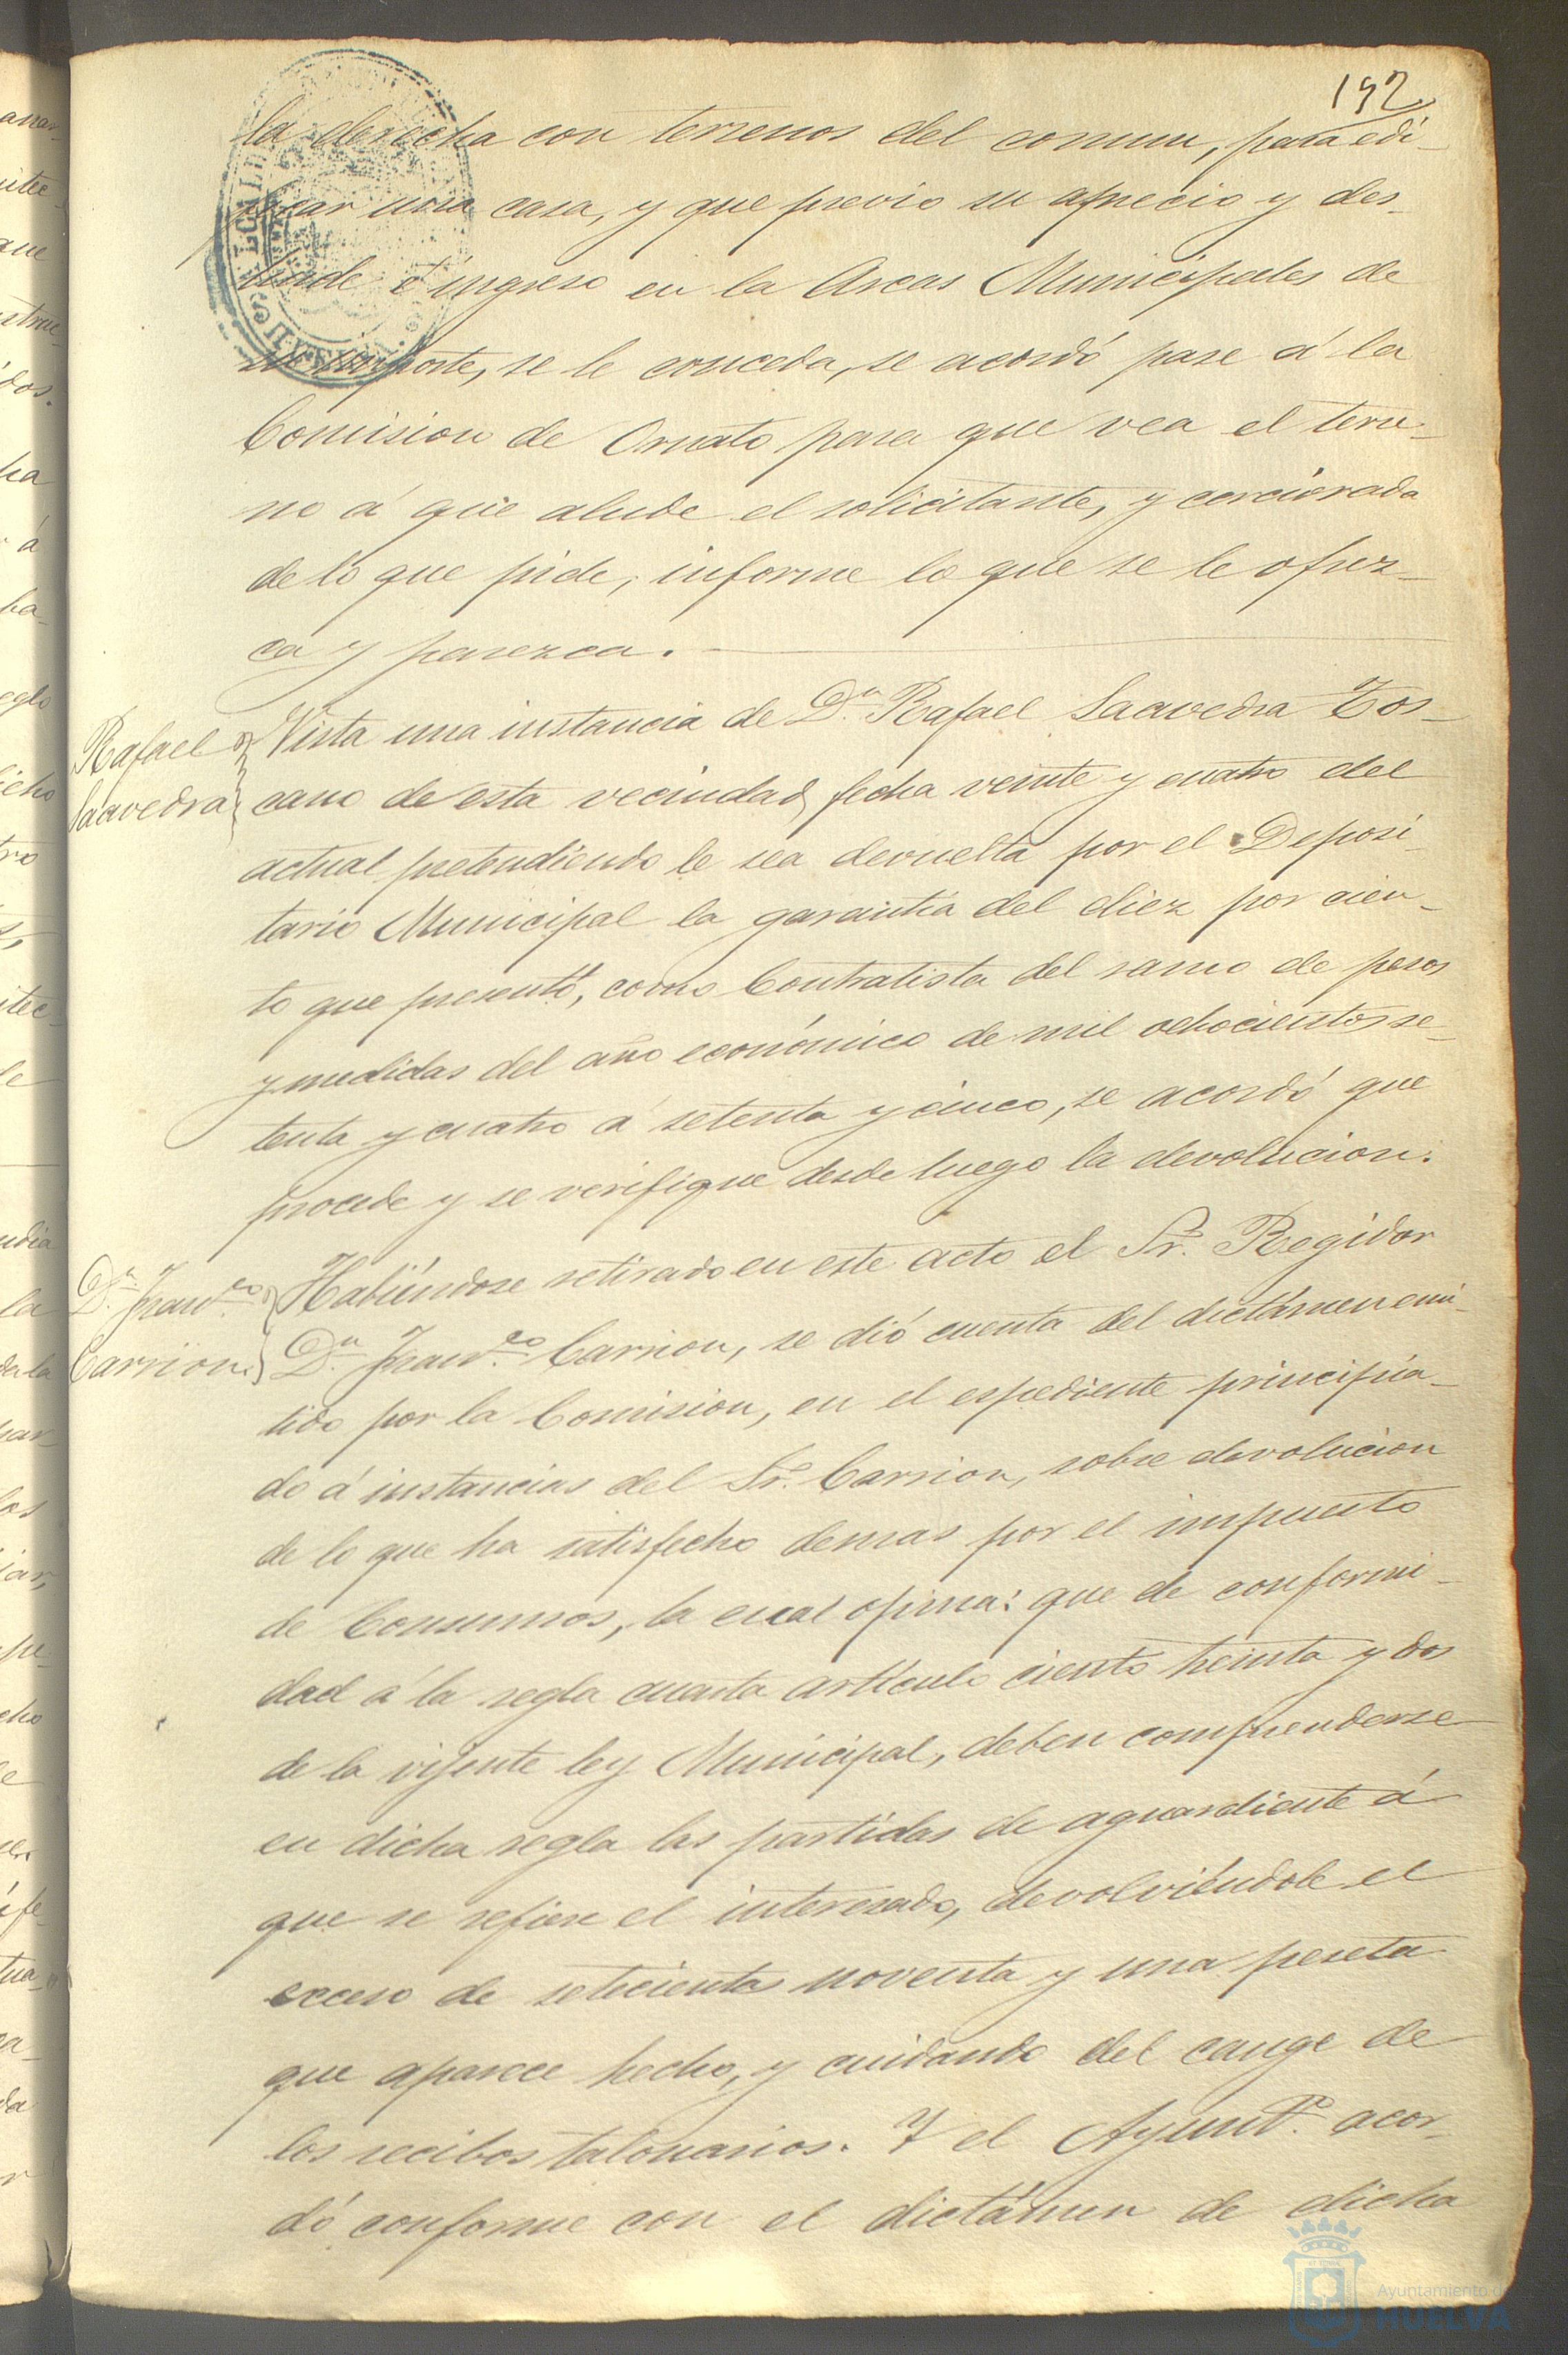 192
la derecha con terrenos del comun, para edi-
ficar una casa, y que previo su aprecio y des-
linde é ingreso en la Arcas Municipales de
su importe, se le conceda, se acordó pase á la
Comision de Ornato para que vea el terre-
no á que alude el solicitante, y cerciorada
de lo que pide, informe lo que se le ofrez-
ca y parezca.
Rafael
Saavedra
Vista una instancia de D.n Rafael Saavedra Tos-
cano de esta vecindad, fecha veinte y cuatro del
actual pretendiendo le sea devuelta por el Deposi-
tario Municipal la garantía del diez por cien-
to que presentó, como Contratista del ramo de pesos
y medidas del año económico de mil ochocientos se-
tenta y cuatro á setenta y cinco, se acordó que
procede y se verifique desde luego la devolucion.
D.n Fran.co
Carrion.
Habiéndose retirado en este acto el Sr. Regidor
D.n Fran.co Carrion, se dió cuenta del dictámen emi-
tido por la Comision, en el espediente principia-
do á instancias del Sr. Carrion, sobre devolucion
de lo que ha satisfecho demas por el impuesto
de Consumos, la cual opina: que de conformi-
dad á la regla cuarta artículo ciento treinta y dos
de la vijente ley Municipal, deben comprenderse
en dicha regla las partidas de aguardiente á
que se refiere el interesado, devolviéndole el
exceso de setecientas noventa y una peseta
que aparece hecho, y cuidando del cange de
los recibos talonarios. Y el Ayunt.o acor-
dó conforme con el dictámen de dicha
Ayuntamiento de
HUELVA